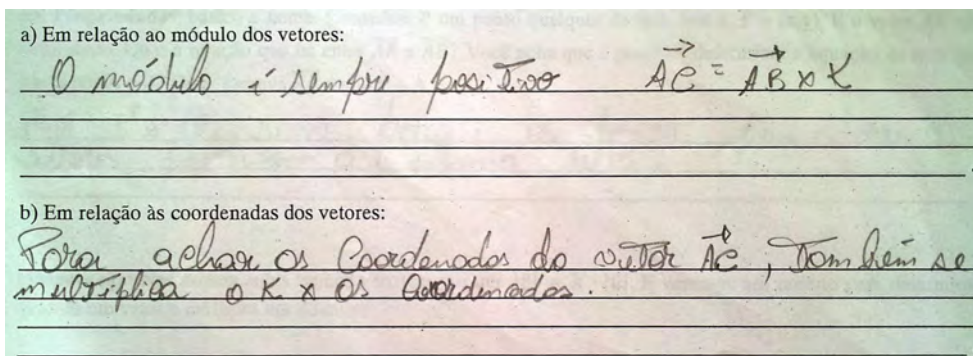 a) Em relação ao módulo dos vetores:
O módulo é sempre positivo $\overrightarrow{AC} = \overrightarrow{AB} \times K$
b) Em relação às coordenadas dos vetores:
Para achar as Coordenadas do vetor $\overrightarrow{AC}$, Também se
multiplica o K x as Coordenadas.